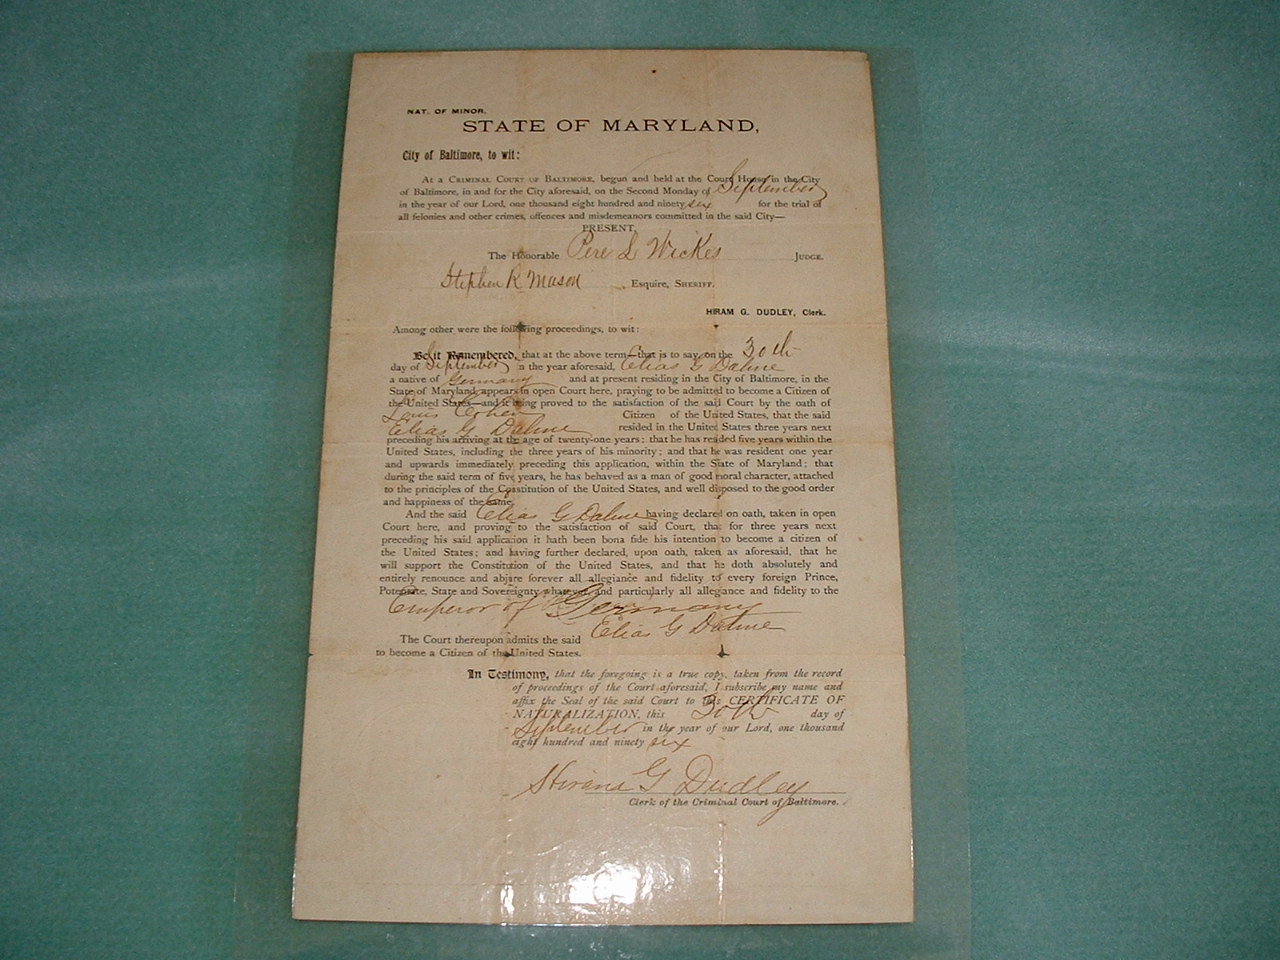 NAT. OF MINOR.
STATE OF MARYLAND,
City of Baltimore, to wit:
At a Criminal Court of Baltimore, begun and held at the Court House in the City
of Baltimore, in and for the City aforesaid, on the Second Monday of September
in the year of our Lord, one thousand eight hundred and ninety six for the trial of
all felonies and other crimes, offences and misdemeanors committed in the said City—
PRESENT,
The Honorable Pere L Wickes JUDGE.
Stephen R Mason Esquire, SHERIFF.
HIRAM G. DUDLEY, Clerk.
Among other were the following proceedings, to wit:
Be it Remembered, that at the above term—that is to say, on the 30th
day of September in the year aforesaid, Elias G Dahne
a native of Germany and at present residing in the City of Baltimore, in the
State of Maryland, appears in open Court here, praying to be admitted to become a Citizen of
the United States—and it being proved to the satisfaction of the said Court by the oath of
Louis Cohen Citizen of the United States, that the said
Elias G Dahne resided in the United States three years next
preceding his arriving at the age of twenty-one years; that he has resided five years within the
United States, including the three years of his minority; and that he was resident one year
and upwards immediately preceding this application, within the State of Maryland; that
during the said term of five years, he has behaved as a man of good moral character, attached
to the principles of the Constitution of the United States, and well disposed to the good order
and happiness of the same.
And the said Elias G Dahne having declared on oath, taken in open
Court here, and proving to the satisfaction of said Court, that for three years next
preceding his said application it hath been bona fide his intention to become a citizen of
the United States; and having further declared, upon oath, taken as aforesaid, that he
will support the Constitution of the United States, and that he doth absolutely and
entirely renounce and abjure forever all allegiance and fidelity to every foreign Prince,
Potentate, State and Sovereignty whatever, and particularly all allegiance and fidelity to the
Emperor of Germany
The Court thereupon admits the said Elias G Dahne
to become a Citizen of the United States.
In Testimony, that the foregoing is a true copy, taken from the record
of proceedings of the Court aforesaid, I subscribe my name and
affix the Seal of the said Court to this CERTIFICATE OF
NATURALIZATION, this 30th day of
September in the year of our Lord, one thousand
eight hundred and ninety six
Hiram G Dudley
Clerk of the Criminal Court of Baltimore.